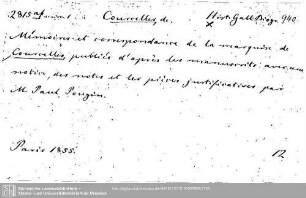 Courcelles, de.
Hist. Gall. Biogr. 940.
Mémoires et correspondance de la marquise de
Courcelles publiés d'après les manuscrits avec une
notice, des notes et les pièces justificatives par
M. Paul Pougin.
Paris 1855.
12